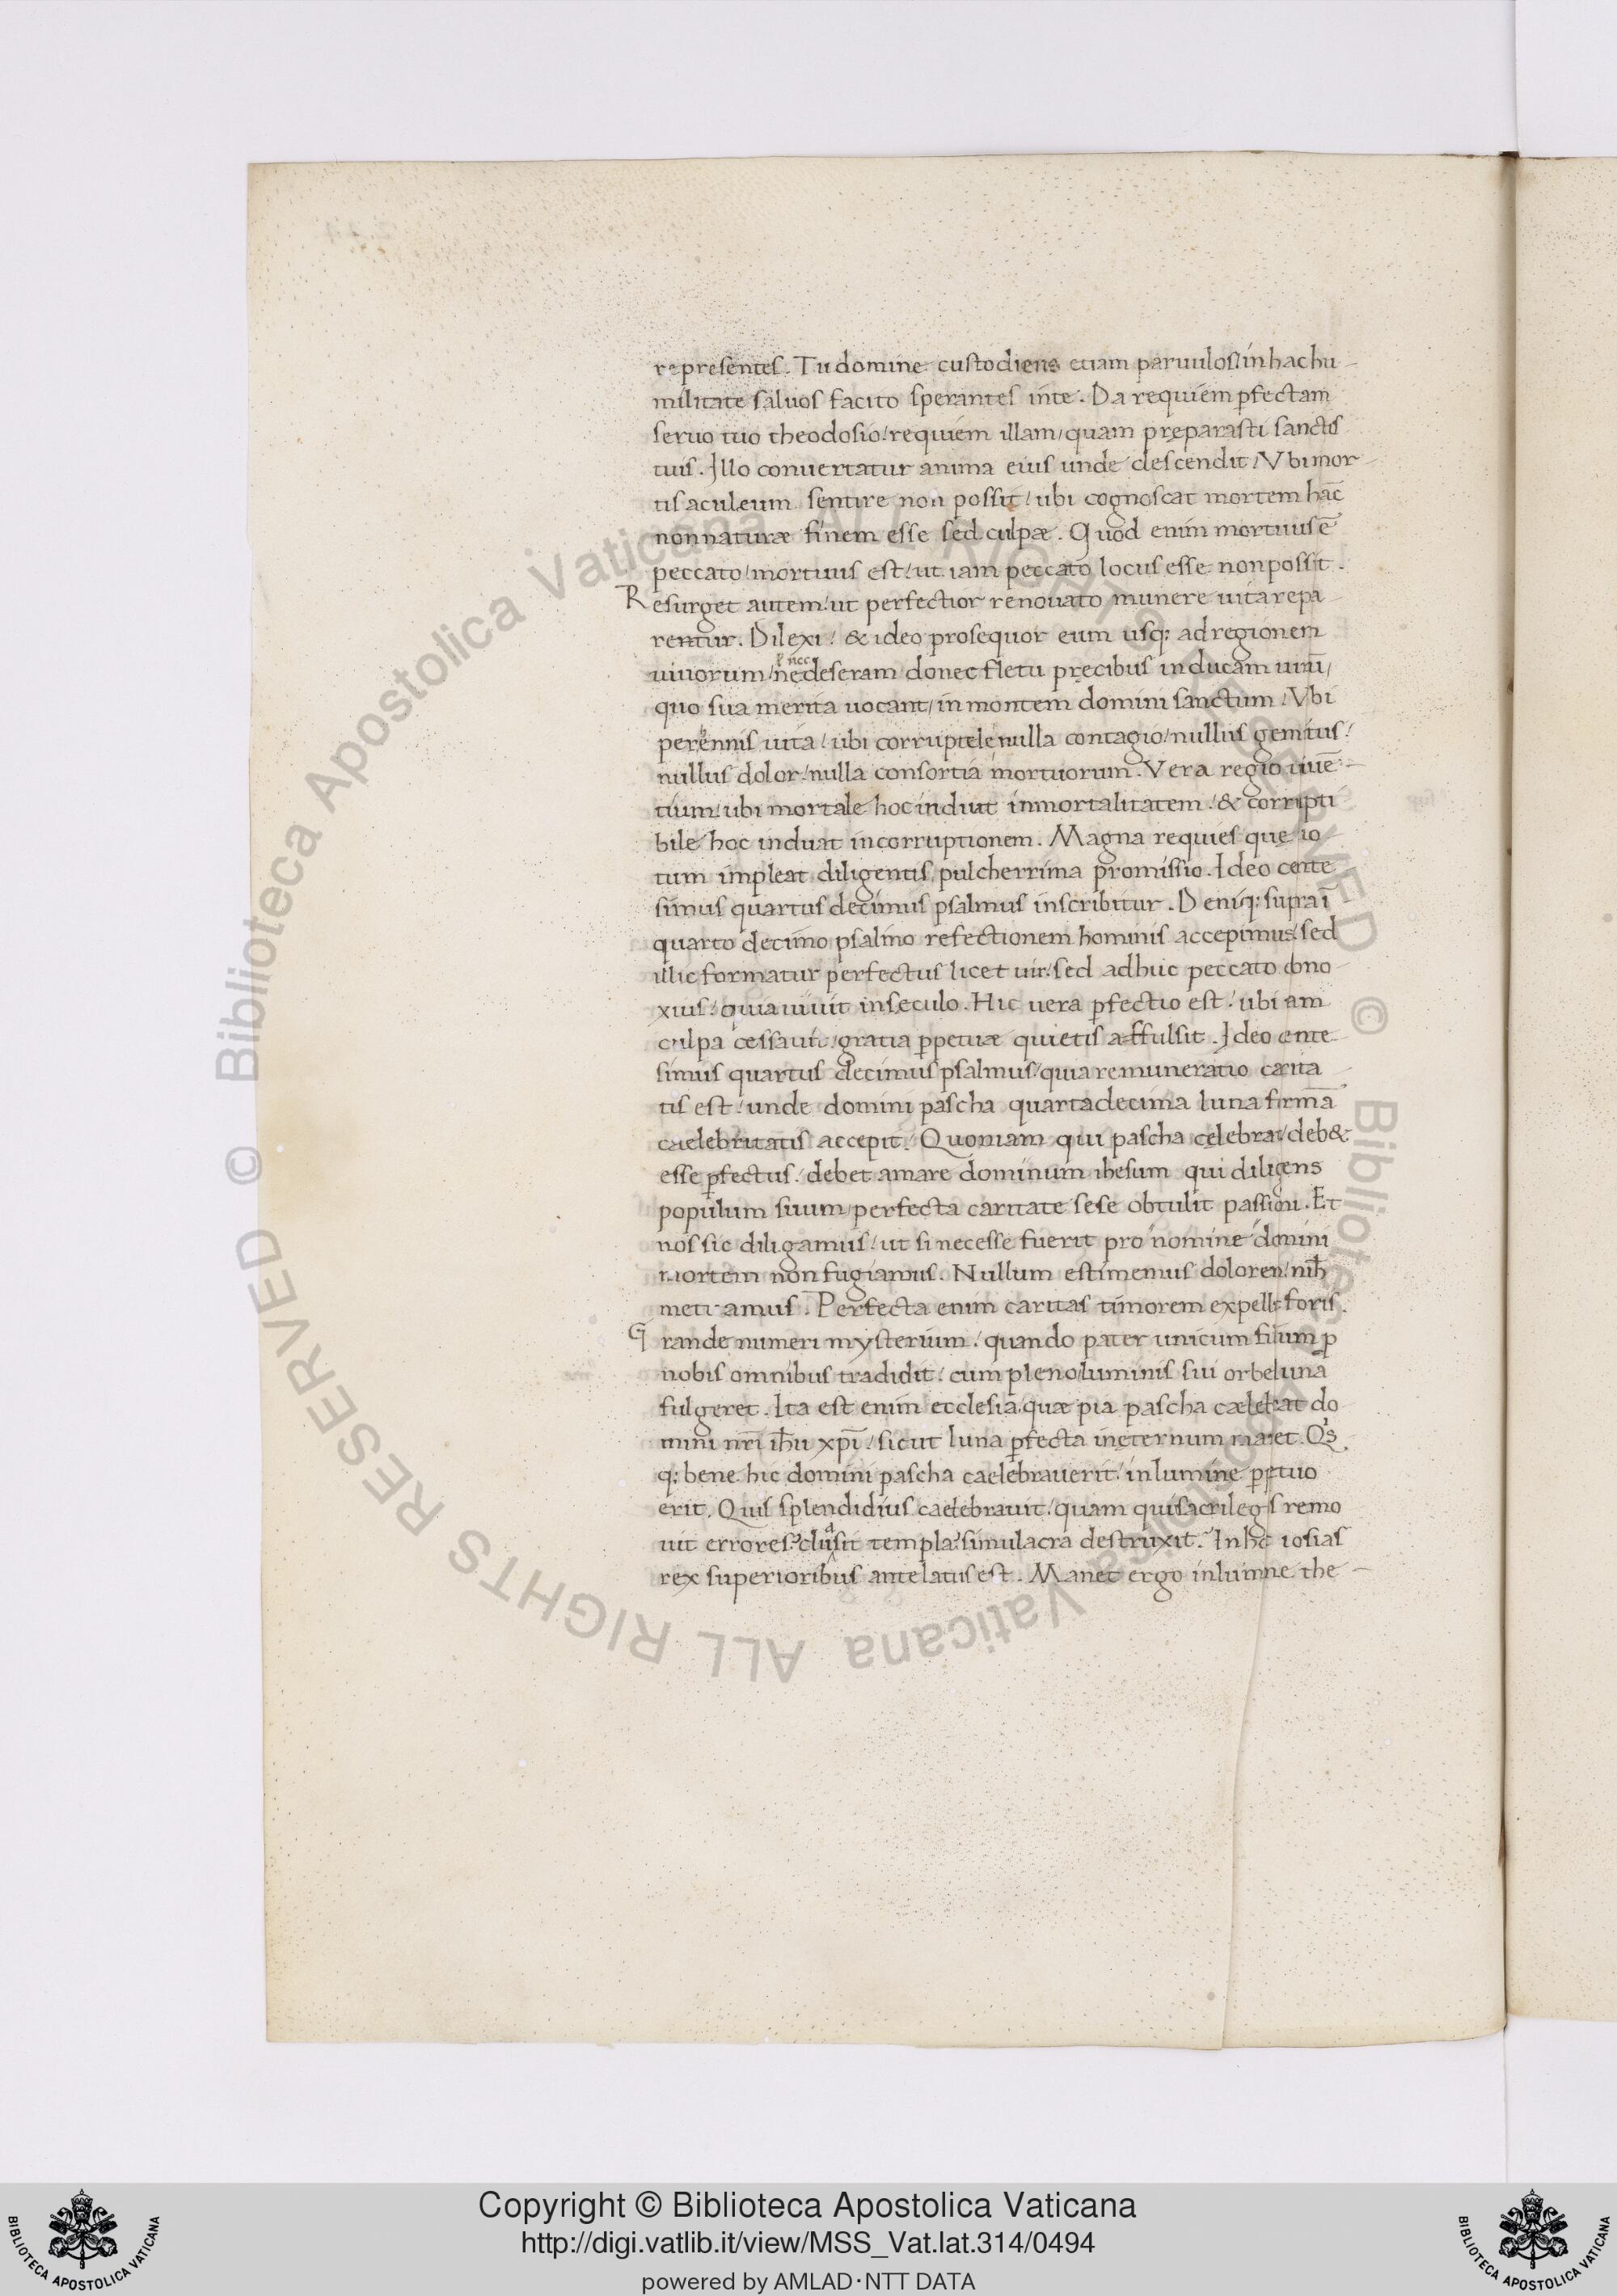 representes. Tu domine custodiens etiam paruulos/in hac hu-
militate saluos facito sperantes inte. Da requiem pfectam
seruo tuo theodosio/requiem illam/quam pręparasti sanctis
tuis. Illo conuertatur anima eius unde descendit/Vbi mor-
tis aculeum sentire non possit/ubi cognoscat mortem hac̄
non naturæ finem esse sed culpæ. Quod enim mortuus ē
peccato/mortuus est/ut iam peccato locus esse non possit.
Resurget autem/ut perfectior renouato munere uita repa-
rentur. Dilexi/& ideo prosequor eum usq; ad regionem
uiuorum/ne deseram/donec fletu pręcibus inducam uirū/
nec
quo sua merita uocant/in montem domini sanctum/Vbi
perennis uita/ubi corruptelę nulla contagio/nullus gemitus/
nullus dolor/nulla consortia mortuorum. Vera regio uiuē-
tium/ubi mortale hoc induit inmortalitatem/& corrupti
bile hoc induat incorruptionem. Magna requies quę io
tum impleat diligentis pulcherrima promissio. Ideo cente
simus quartus decimus psalmus inscribitur. Deniq; supra ī
quarto decimo psalmo refectionem hominis accepimus/sed
illic formatur perfectus licet uir/sed adhuc peccato obno-
xius/quia uiuit in seculo. Hic uera pfectio est/ubi iam
culpa cessauit/gratia ppetuæ quietis affulsit. Ideo cente-
simus quartus decimus psalmus/quia remuneratio carita-
tis est/unde domini pascha quartadecima luna firmā
caelebritatis accepit. Quoniam qui pascha cęlebrat/deb&
esse pfectus/debet amare dominum ihesum qui diligens
populum suum/perfecta caritate sese obtulit passioni. Et
nos sic diligamus/ut si necesse fuerit pro nomine domini
mortem non fugiamus. Nullum estimemus dolorem/nih̄
metuamus. Perfecta enim caritas timorem expellit foris.
Grande numeri mysterium/quando pater unicum filium p
nobis omnibus tradidit/cum pleno luminis sui orbe luna
fulgeret. Ita est enim ecclesia/quæ pia pascha cælebrat do
mini nrī ih̄u xpī/sicut luna pfecta in ęternum manet. Q's
q; bene hic domini pascha caelebrauerit/in lumine ppetuo
erit. Quis splendidius caelebrauit/quam qui sacrilegos remo
uit errores? clusit templa? simulacra destruxit. In hc̄ iosias
a
rex superioribus antelatus est. Manet ergo in lumine the-
© Biblioteca Apostolica Vaticana ALL RIGHTS RESERVED © Biblioteca Apostolica Vaticana ALL RIGHTS RESERVED
Copyright © Biblioteca Apostolica Vaticana
http://digi.vatlib.it/view/MSS_Vat.lat.314/0494
powered by AMLAD·NTT DATA
BIBLIOTECA APOSTOLICA VATICANA
BIBLIOTECA APOSTOLICA VATICANA